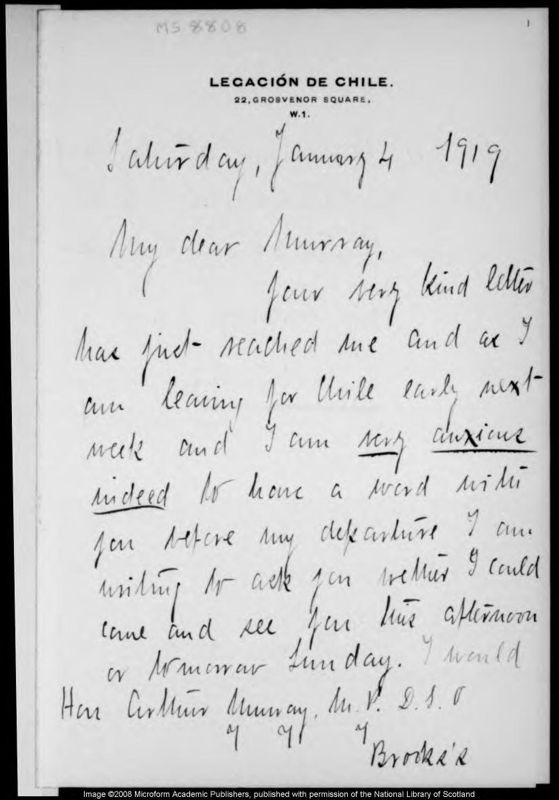 MS 8808
1
LEGACIÓN DE CHILE.
22, GROSVENOR SQUARE,
W.1.
Saturday, January 4 1919
My dear Murray,
Your very kind letter
has just reached me and as I
am leaving for Chile early next
week and I am very anxious
indeed to have a word with
you before my departure I am
writing to ask you wether I could
come and see you this afternoon
or tomorrow Sunday. I would
Hon Arthur Murray, M.P. D.S.O
Brooks's
Image ©2008 Microform Academic Publishers, published with permission of the National Library of Scotland